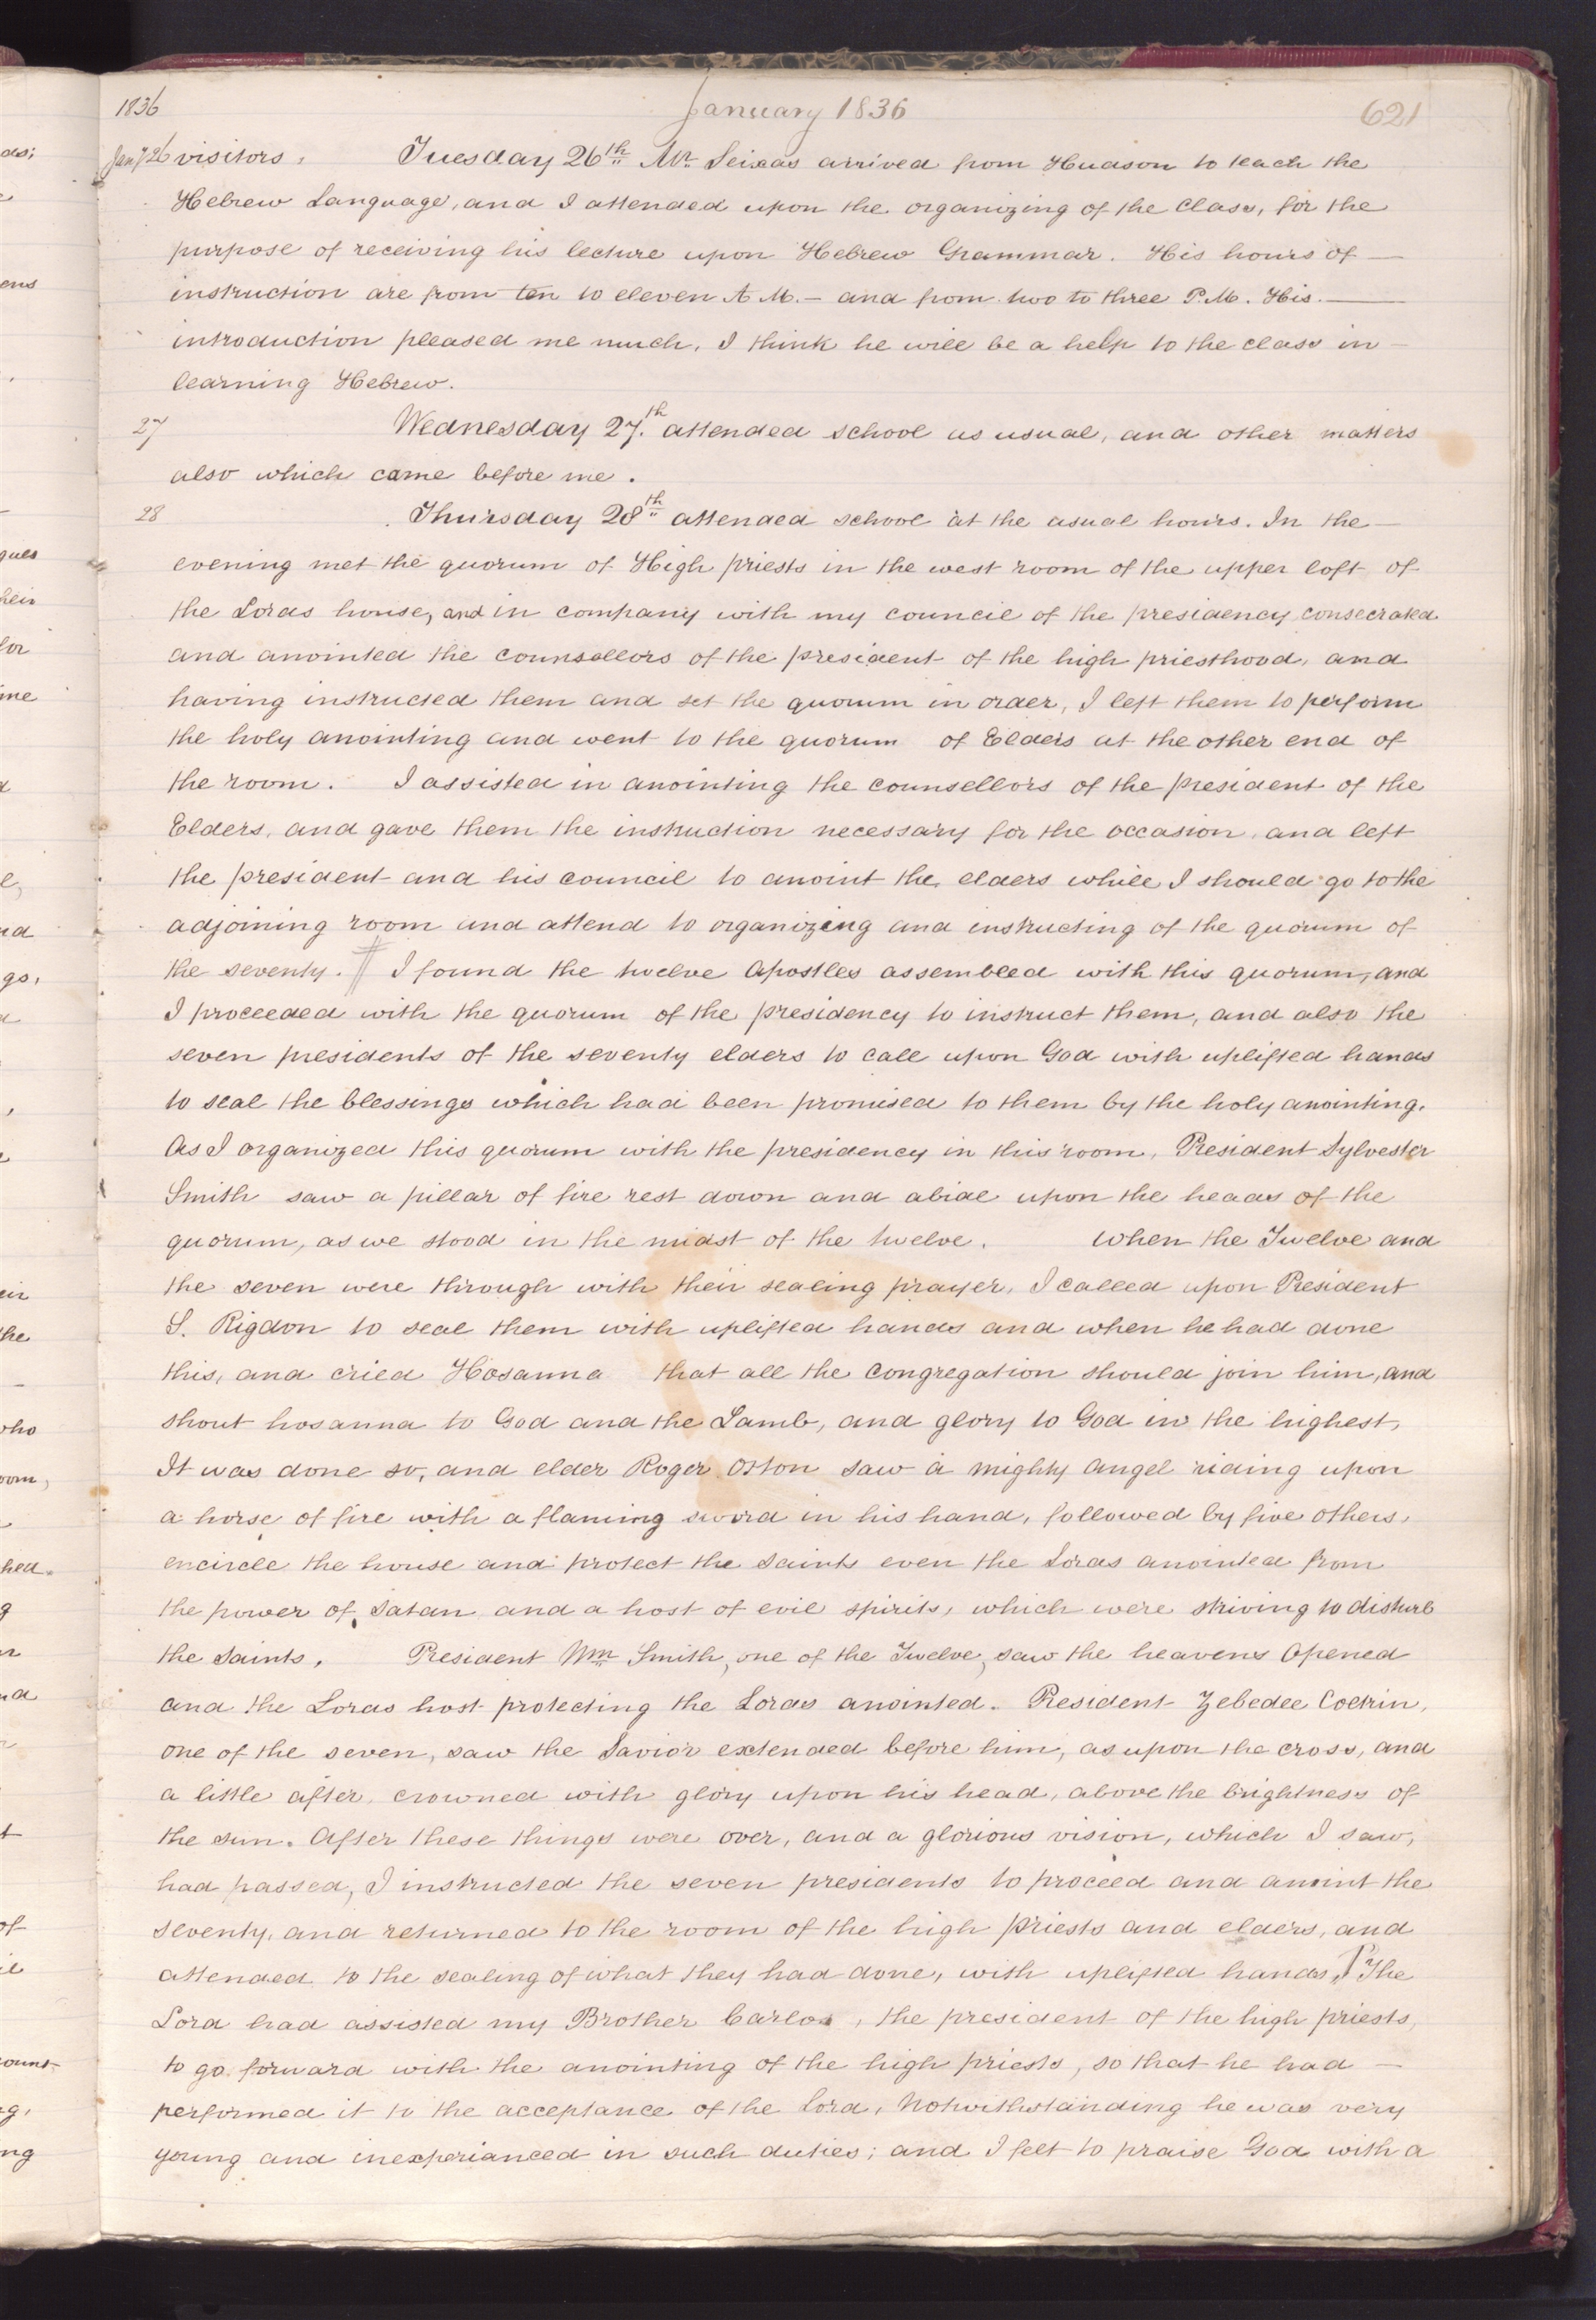 1836 January 1836 621
Jany 26 visitors. Tuesday 26th Mr. Seixas arrived from Hudson to teach the
Hebrew Language, and I attended upon the organizing of the class, for the
purpose of receiving his lecture upon Hebrew Grammar. His hours of —
instruction are from ten to eleven A M. — and from two to three P.M. His. —
introduction pleased me much, I think he will be a help to the class in —
learning Hebrew.
27 Wednesday 27.th attended school as usual, and other matters
also which came before me.
28 Thursday 28th attended school at the usual hours. In the —
evening met the quorum of High priests in the west room of the upper loft of
the Lords house, and in company with my council of the presidency consecrated
and anointed the counsellors of the president of the high priesthood, and
having instructed them and set the quorum in order, I left them to perform
the holy anointing and went to the quorum of Elders at the other end of
the room. I assisted in anointing the counsellors of the president of the
Elders, and gave them the instruction necessary for the occasion, and left
the president and his council to anoint the elders while I should go to the
adjoining room and attend to organizing and instructing of the quorum of
the seventy. ¶ I found the twelve Apostles assembled with this quorum, and
I proceeded with the quorum of the presidency to instruct them, and also the
seven presidents of the seventy elders to call upon God with uplifted hands
to seal the blessings which had been promised to them by the holy anointing.
As I organized this quorum with the presidency in this room, President Sylvester
Smith saw a pillar of fire rest down and abide upon the heads of the
quorum, as we stood in the midst of the twelve. When the Twelve and
the seven were through with their sealing prayer, I called upon President
S. Rigdon to seal them with uplifted hands and when he had done
this, and cried Hosanna that all the congregation should join him, and
shout hosanna to God and the Lamb, and glory to God in the highest,
It was done so, and elder Roger Orton saw a mighty angel riding upon
a horse of fire with a flaming sword in his hand, followed by five others,
encircle the house and protect the saints even the Lords anointed from
the power of Satan and a host of evil spirits, which were striving to disturb
the saints. President Wm Smith, one of the Twelve, saw the heavens opened
and the Lords host protecting the Lords anointed. President Zebedee Coltrin,
one of the seven, saw the Savior extended before him, as upon the cross, and
a little after, crowned with glory upon his head, above the brightness of
the sun. After these things were over, and a glorious vision, which I saw,
had passed, I instructed the seven presidents to proceed and anoint the
seventy, and returned to the room of the high priests and elders, and
attended to the sealing of what they had done, with uplifted hands. ¶ The
Lord had assisted my Brother Carlos, the president of the high priests,
to go forward with the anointing of the high priests, so that he had —
performed it to the acceptance of the Lord, Notwithstanding he was very
young and inexperianced in such duties; and I felt to praise God with a